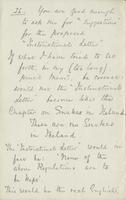 II. You are good enough
to ask me for "suggestions"
for the proposed
"Instructional Letter"
If what I have tried to set
forth in my (too long)
would not the "Instructional
Letter" become like the
Chapter on Snakes in Iceland
There are no Snakes
in Iceland
The "Instructional Letter" would
be: "None of the
above Regulations are to
be kept"
This would be the real English